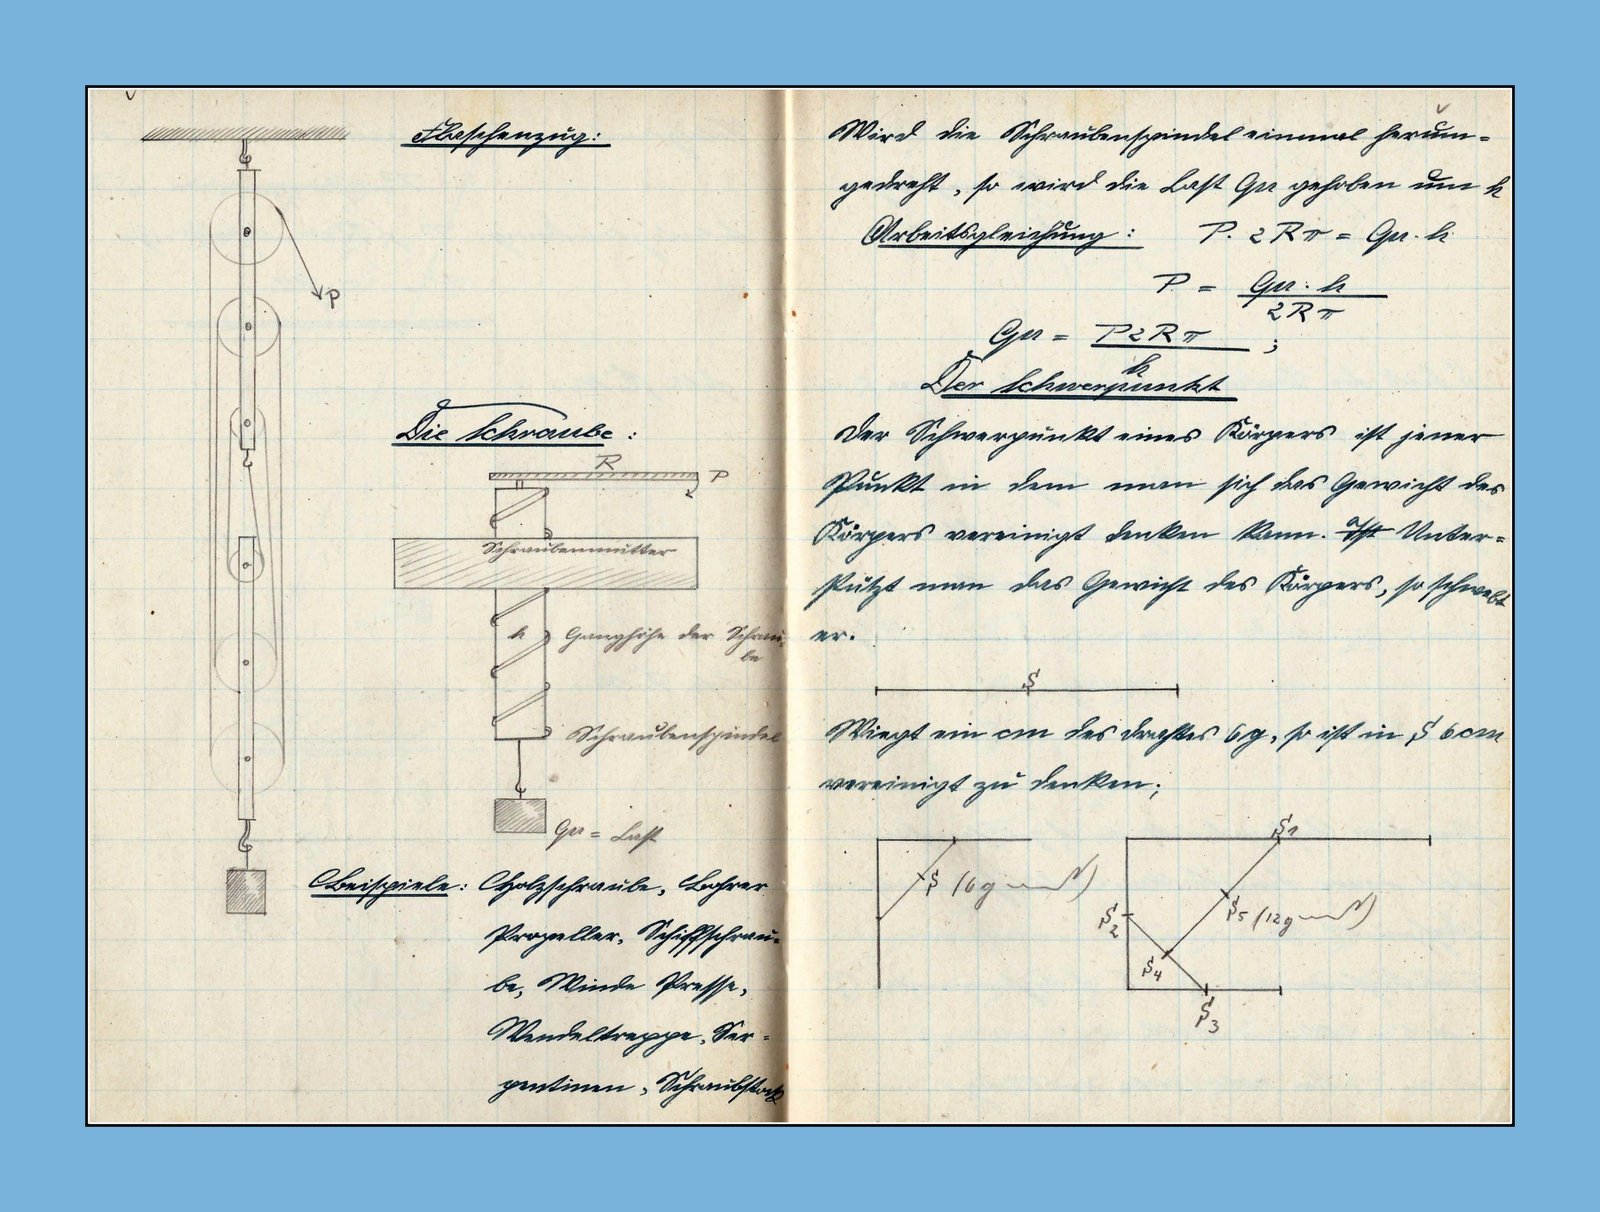 Flaschenzug:
P
Die Schraube:
R
P
Schraubenmutter
h
Ganghöhe der Schrau-
be
Schraubenspindel
Gu = Last
Beispiele: Holzschraube, Bohrer
Propeller, Schiffschrau-
be, Winde Presse,
Wendeltreppe, Ser-
pentinen, Schraubstock
Wird die Schraubenspindel einmal herum-
gedreht, so wird die Last Gu gehoben um h
Arbeitsgleichung: P. 2Rπ = Gu. h
P = Gu. h
2Rπ
Gu = P2Rπ ;
h
Der Schwerpunkt
Der Schwerpunkt eines Körpers ist jener
Punkt in dem man sich das Gewicht des
Körpers vereinigt denken kann. Unter-
stützt man das Gewicht des Körpers, so schwebt
er.
S
Wiegt ein cm des Drahtes 6g, so ist in S 6cm
vereinigt zu denken;
S (6g
S1
S2
S5 (12g
S4
S3